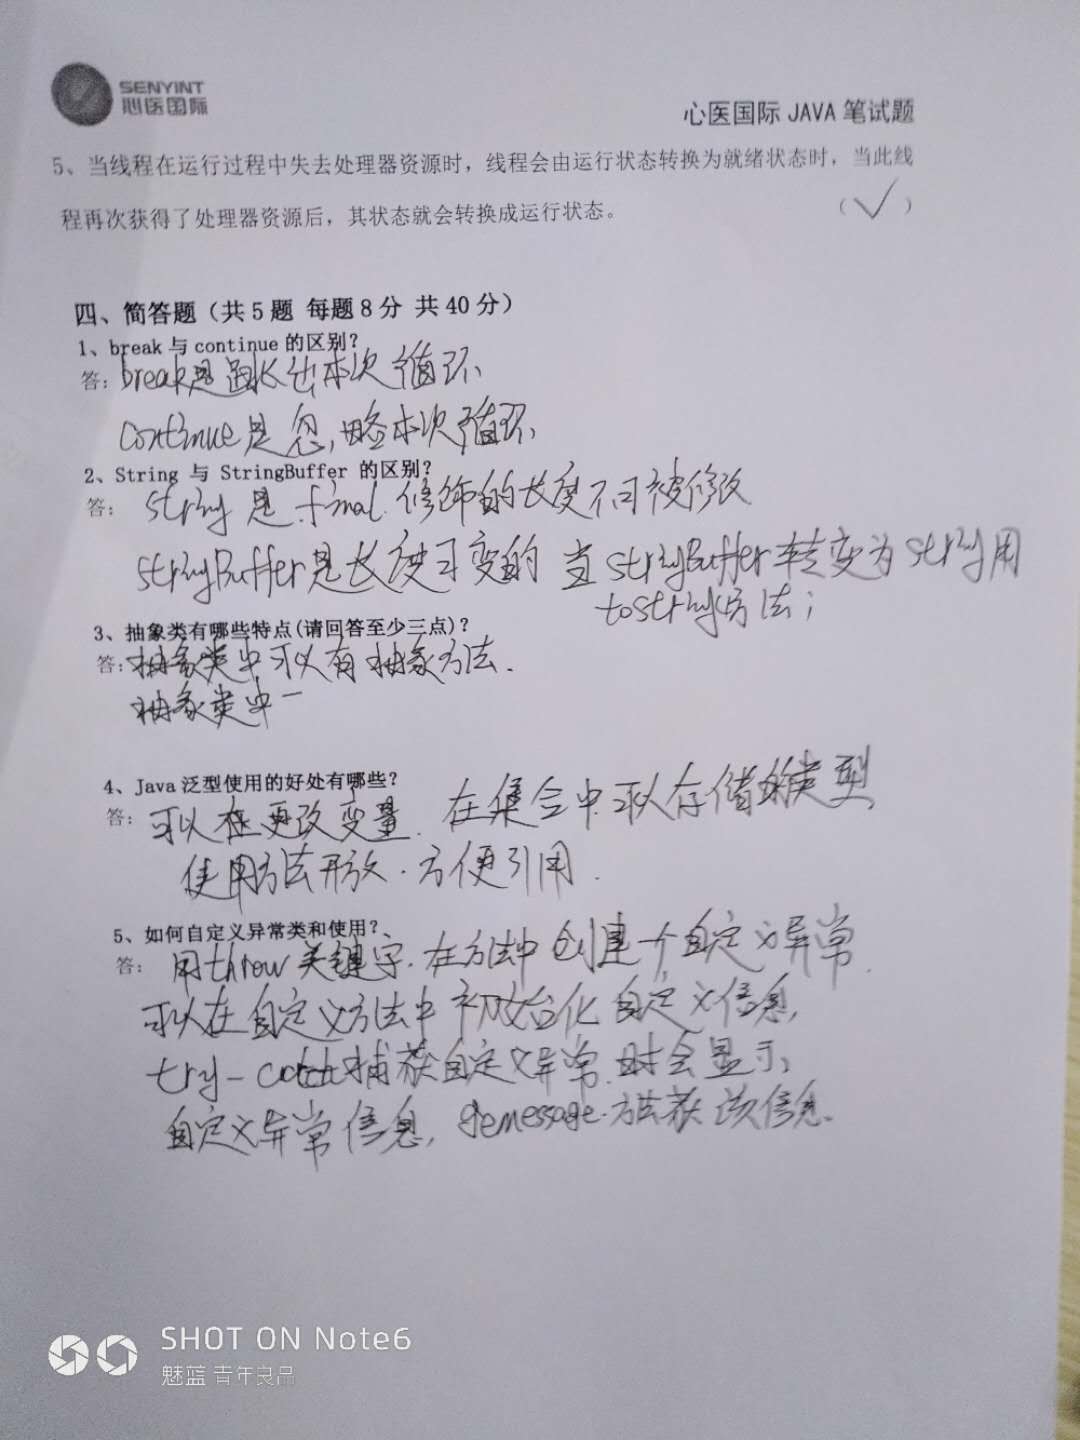 SENYINT
心医国际
心医国际 JAVA 笔试题
5、当线程在运行过程中失去处理器资源时，线程会由运行状态转换为就绪状态时，当此线
程再次获得了处理器资源后，其状态就会转换成运行状态。 （√）
四、简答题（共5题 每题8分 共40分）
1、break 与 continue 的区别？
答：break是跳出本次循环
continue是忽略本次循环
2、String 与 StringBuffer 的区别？
答： string 是 final 修饰的长度不可被修改
stringBuffer是长度可变的 当stringBuffer转变为string用
tostring方法；
3、抽象类有哪些特点(请回答至少三点)？
答：抽象类中可以有抽象方法.
抽象类中一
4、Java 泛型使用的好处有哪些？
答： 可以在更改变量. 在集合中可以存储的类型
使用方法形放.方便引用.
5、如何自定义异常类和使用？、
答： 用throw关键字.在方法中创建一个自定义异常.
可以在自定义方法中初始化自定义信息,
try-catch捕获自定义异常.时会显示
自定义异常信息, gemessage.方法获该信息.
SHOT ON Note6
魅蓝 青年良品